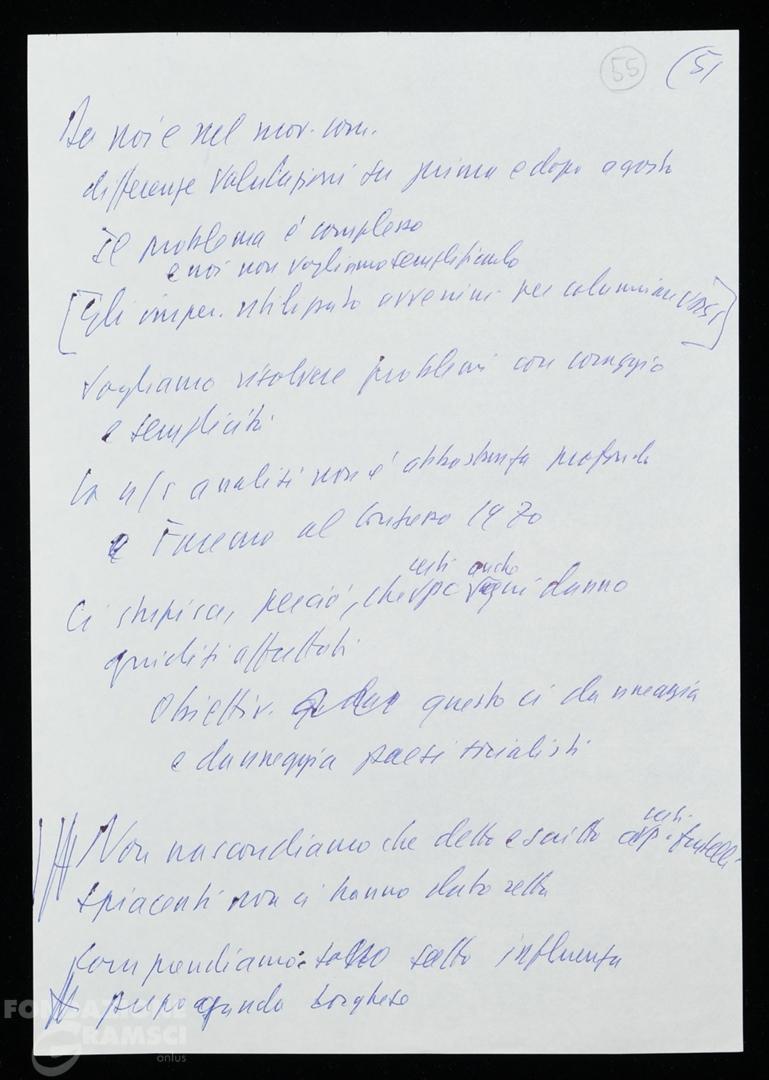 55 (51
Da noi e nel mov. com.
differenze valutazioni su prima e dopo agosto
Il problema è complesso
e noi non vogliamo semplificarlo
[Gli imper. utilizzato avvenim. per calunniare URSS]
Vogliamo risolvere problemi con coraggio
e semplicità
La n/s analisi non è abbastanza profonda
e Faremo al Congresso 1970
certi anche
Ci stupisce, perciò, che pc ogni danno
giudizi affrettati
Obiettiv. questo ci danneggia
e danneggia paesi socialisti
certi
Non nascondiamo che detto e scritto a p. fratelli
Spiacenti non ci hanno dato retta
Comprendiamo: sono sotto influenza
propaganda borghese
FONDAZIONE
GRAMSCI
onlus